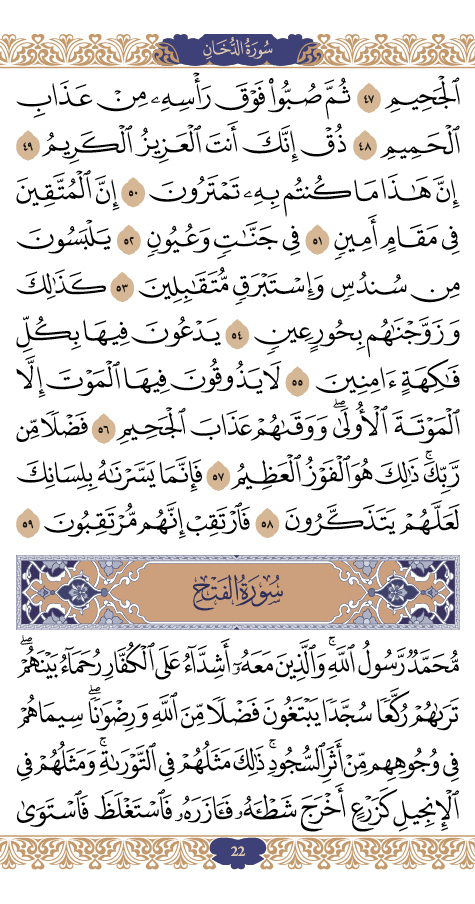 سُورَةُ الدُّخَانِ
ٱلْجَحِيمِ ٤٧ ثُمَّ صُبُّوا۟ فَوْقَ رَأْسِهِۦ مِنْ عَذَابِ
ٱلْحَمِيمِ ٤٨ ذُقْ إِنَّكَ أَنتَ ٱلْعَزِيزُ ٱلْكَرِيمُ ٤٩
إِنَّ هَـٰذَا مَا كُنتُم بِهِۦ تَمْتَرُونَ ٥٠ إِنَّ ٱلْمُتَّقِينَ
فِى مَقَامٍ أَمِينٍ ٥١ فِى جَنَّـٰتٍ وَعُيُونٍ ٥٢ يَلْبَسُونَ
مِن سُندُسٍ وَإِسْتَبْرَقٍ مُّتَقَـٰبِلِينَ ٥٣ كَذَٰلِكَ
وَزَوَّجْنَـٰهُم بِحُورٍ عِينٍ ٥٤ يَدْعُونَ فِيهَا بِكُلِّ
فَـٰكِهَةٍ ءَامِنِينَ ٥٥ لَا يَذُوقُونَ فِيهَا ٱلْمَوْتَ إِلَّا
ٱلْمَوْتَةَ ٱلْأُولَىٰ ۖ وَوَقَىٰهُمْ عَذَابَ ٱلْجَحِيمِ ٥٦ فَضْلًا مِّن
رَّبِّكَ ۚ ذَٰلِكَ هُوَ ٱلْفَوْزُ ٱلْعَظِيمُ ٥٧ فَإِنَّمَا يَسَّرْنَـٰهُ بِلِسَانِكَ
لَعَلَّهُمْ يَتَذَكَّرُونَ ٥٨ فَٱرْتَقِبْ إِنَّهُم مُّرْتَقِبُونَ ٥٩
سُورَةُ الفَتۡحِ
مُّحَمَّدٌ رَّسُولُ ٱللَّهِ ۚ وَٱلَّذِينَ مَعَهُۥٓ أَشِدَّآءُ عَلَى ٱلْكُفَّارِ رُحَمَآءُ بَيْنَهُمْ ۖ
تَرَىٰهُمْ رُكَّعًا سُجَّدًا يَبْتَغُونَ فَضْلًا مِّنَ ٱللَّهِ وَرِضْوَٰنًا ۖ سِيمَاهُمْ
فِى وُجُوهِهِم مِّنْ أَثَرِ ٱلسُّجُودِ ۚ ذَٰلِكَ مَثَلُهُمْ فِى ٱلتَّوْرَىٰةِ ۚ وَمَثَلُهُمْ فِى
ٱلْإِنجِيلِ كَزَرْعٍ أَخْرَجَ شَطْـَٔهُۥ فَـَٔازَرَهُۥ فَٱسْتَغْلَظَ فَٱسْتَوَىٰ
22